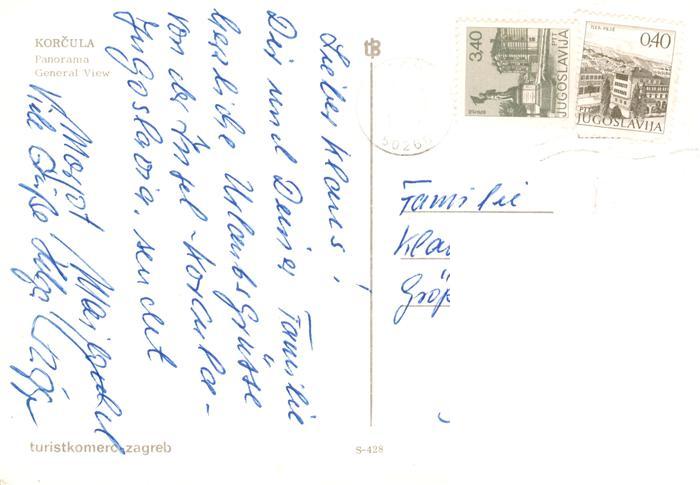 KORČULA
Panorama
General View
Lieber Klaus!
Dir und Deiner Familie
herzliche Urlaubsgrüsse
von der Insel - Korcula -
Jugoslavia, sendet
Viele Grüße Helga
turistkomerc-zagreb
S-428
tB
3,40
PTT
JUGOSLAVIJA
0,40
PTT JUGOSLAVIJA
50260
Familie
Kla
Grö